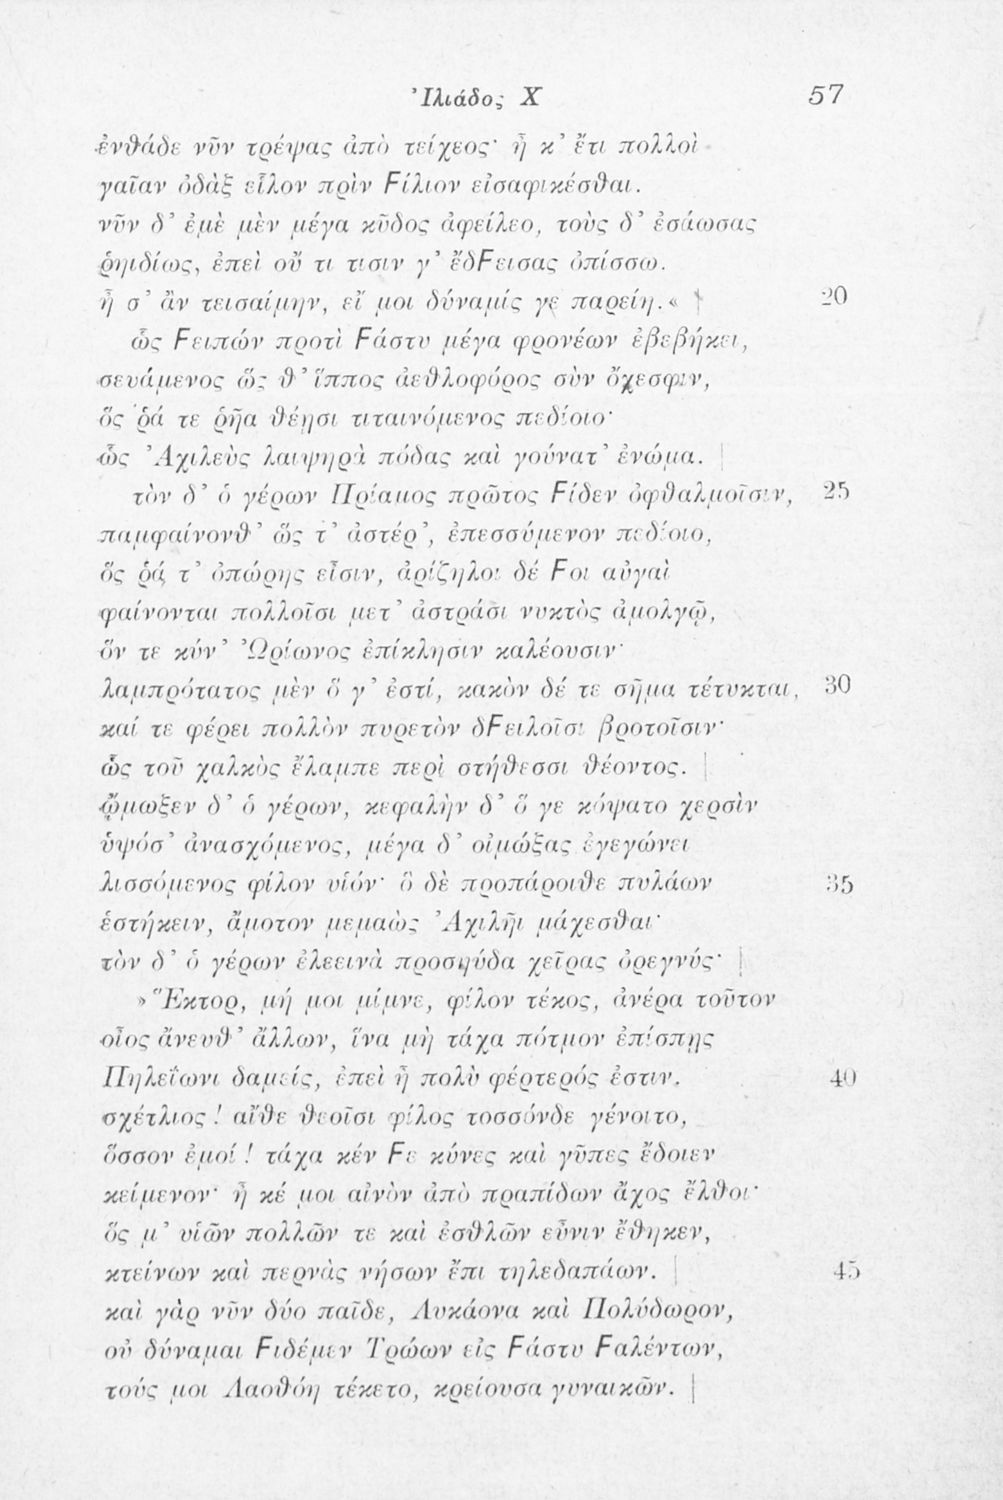 Ἰλιάδος Χ 57
ἐνθάδε νῦν τρέψας ἀπὸ τείχεος· ἦ κ’ ἔτι πολλοὶ
γαῖαν ὀδὰξ εἷλον πρὶν Ϝίλιον εἰσαφικέσθαι.
νῦν δ’ ἐμὲ μὲν μέγα κῦδος ἀφείλεο, τοὺς δ’ ἐσάωσας
ῥηιδίως, ἐπεὶ οὔ τι τισιν γ’ ἔδϜεισας ὀπίσσω.
ἦ σ’ ἂν τεισαίμην, εἴ μοι δύναμίς γε παρείη.« 20
ὣς Ϝειπών προτὶ Ϝάστυ μέγα φρονέων ἐβεβήκει,
σευάμενος ὥς θ’ ἵππος ἀεθλοφόρος σὺν ὄχεσφιν,
ὅς ῥά τε ῥῆα θέησι τιταινόμενος πεδίοιο·
ὣς Ἀχιλεὺς λαιψηρὰ πόδας καὶ γούνατ’ ἐνώμα.
τὸν δ’ ὁ γέρων Πρίαμος πρῶτος Ϝίδεν ὀφθαλμοῖσιν, 25
παμφαίνονθ’ ὥς τ’ ἀστέρ’, ἐπεσσύμενον πεδίοιο,
ὅς ῥά τ’ ὀπώρης εἶσιν, ἀρίζηλοι δέ Ϝοι αὐγαὶ
φαίνονται πολλοῖσι μετ’ ἀστράσι νυκτὸς ἀμολγῷ,
ὅν τε κύν’ Ὠρίωνος ἐπίκλησιν καλέουσιν·
λαμπρότατος μὲν ὅ γ’ ἐστί, κακὸν δέ τε σῆμα τέτυκται, 30
καί τε φέρει πολλὸν πυρετὸν δϜειλοῖσι βροτοῖσιν·
ὣς τοῦ χαλκὸς ἔλαμπε περὶ στήθεσσι θέοντος.
ᾤμωξεν δ’ ὁ γέρων, κεφαλὴν δ’ ὅ γε κόψατο χερσὶν
ὑψόσ’ ἀνασχόμενος, μέγα δ’ οἰμώξας ἐγεγώνει
λισσόμενος φίλον υἱόν· ὃ δὲ προπάροιθε πυλάων 35
ἑστήκειν, ἄμοτον μεμαὼς Ἀχιλῆι μάχεσθαι·
τὸν δ’ ὁ γέρων ἐλεεινὰ προσηύδα χεῖρας ὀρεγνύς·
»Ἕκτορ, μή μοι μίμνε, φίλον τέκος, ἀνέρα τοῦτον
οἶος ἄνευθ’ ἄλλων, ἵνα μὴ τάχα πότμον ἐπίσπῃς
Πηλεΐωνι δαμείς, ἐπεὶ ἦ πολὺ φέρτερός ἐστιν. 40
σχέτλιος! αἴθε θεοῖσι φίλος τοσσόνδε γένοιτο,
ὅσσον ἐμοί! τάχα κέν Ϝε κύνες καὶ γῦπες ἔδοιεν
κείμενον· ἦ κέ μοι αἰνὸν ἀπὸ πραπίδων ἄχος ἔλθοι·
ὅς μ’ υἱῶν πολλῶν τε καὶ ἐσθλῶν εὖνιν ἔθηκεν,
κτείνων καὶ περνὰς νήσων ἔπι τηλεδαπάων. 45
καὶ γὰρ νῦν δύο παῖδε, Λυκάονα καὶ Πολύδωρον,
οὐ δύναμαι Ϝιδέμεν Τρώων εἰς Ϝάστυ Ϝαλέντων,
τούς μοι Λαοθόη τέκετο, κρείουσα γυναικῶν.